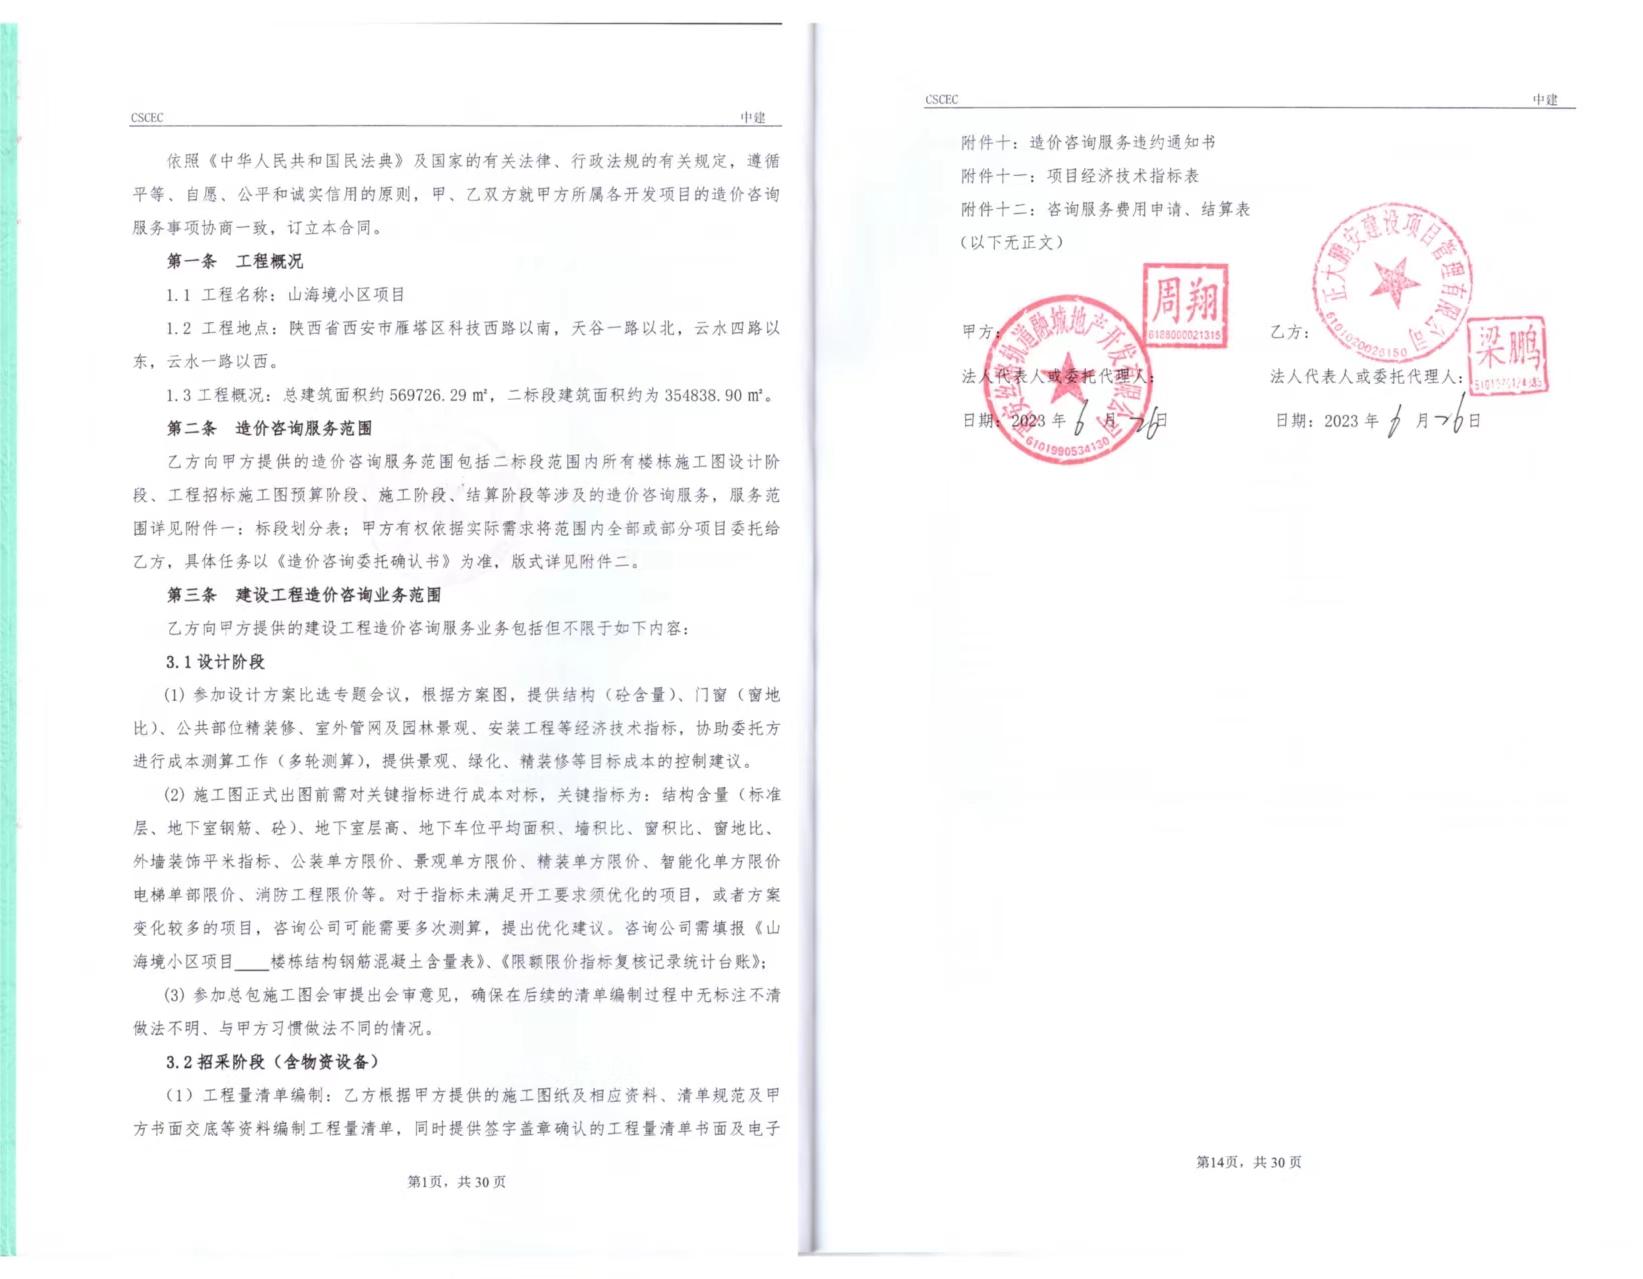 CSCEC 中建
依照《中华人民共和国民法典》及国家的有关法律、行政法规的有关规定，遵循
平等、自愿、公平和诚实信用的原则，甲、乙双方就甲方所属各开发项目的造价咨询
服务事项协商一致，订立本合同。
第一条 工程概况
1.1 工程名称：山海境小区项目
1.2 工程地点：陕西省西安市雁塔区科技西路以南，天谷一路以北，云水四路以
东，云水一路以西。
1.3 工程概况：总建筑面积约 569726.29 ㎡，二标段建筑面积约为 354838.90 ㎡。
第二条 造价咨询服务范围
乙方向甲方提供的造价咨询服务范围包括二标段范围内所有楼栋施工图设计阶
段、工程招标施工图预算阶段、施工阶段、结算阶段等涉及的造价咨询服务，服务范
围详见附件一：标段划分表；甲方有权依据实际需求将范围内全部或部分项目委托给
乙方，具体任务以《造价咨询委托确认书》为准，版式详见附件二。
第三条 建设工程造价咨询业务范围
乙方向甲方提供的建设工程造价咨询服务业务包括但不限于如下内容：
3.1 设计阶段
(1) 参加设计方案比选专题会议，根据方案图，提供结构（砼含量）、门窗（窗地
比）、公共部位精装修、室外管网及园林景观、安装工程等经济技术指标，协助委托方
进行成本测算工作（多轮测算），提供景观、绿化、精装修等目标成本的控制建议。
(2) 施工图正式出图前需对关键指标进行成本对标，关键指标为：结构含量（标准
层、地下室钢筋、砼）、地下室层高、地下车位平均面积、墙积比、窗积比、窗地比、
外墙装饰平米指标、公装单方限价、景观单方限价、精装单方限价、智能化单方限价
电梯单部限价、消防工程限价等。对于指标未满足开工要求须优化的项目，或者方案
变化较多的项目，咨询公司可能需要多次测算，提出优化建议。咨询公司需填报《山
海境小区项目____楼栋结构钢筋混凝土含量表》、《限额限价指标复核记录统计台账》；
(3) 参加总包施工图会审提出会审意见，确保在后续的清单编制过程中无标注不清
做法不明、与甲方习惯做法不同的情况。
3.2 招采阶段（含物资设备）
（1）工程量清单编制：乙方根据甲方提供的施工图纸及相应资料、清单规范及甲
方书面交底等资料编制工程量清单，同时提供签字盖章确认的工程量清单书面及电子
第1页，共 30 页
CSCEC 中建
附件十：造价咨询服务违约通知书
附件十一：项目经济技术指标表
附件十二：咨询服务费用申请、结算表
（以下无正文）
甲方：
西安丝路轨道融城地产开发有限公司
6101990534130
周翔
6128000021315
法人代表人或委托代理人：
日期：2023 年 6 月 26 日
乙方：
正大鹏安建设项目管理有限公司
6101020026150
梁鹏
法人代表人或委托代理人：
日期：2023 年 6 月 26 日
第14页，共 30 页